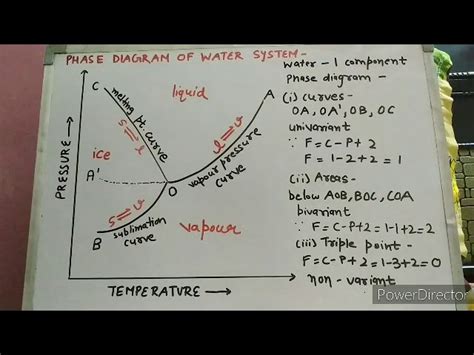 PHASE DIAGRAM OF WATER SYSTEM-
C
melting pt. curve
S⇌l
liquid
A
l⇌v
vapour pressure
curve
ice
A'
O
S⇌v
B
sublimation
curve
vapour
PRESSURE →
TEMPERATURE →
water - 1 component
Phase diagram -
(i) curves-
OA, OA', OB, OC
univariant
∵ F=C-P+2
F=1-2+2=1
(ii) Areas-
below AOB, BOC, COA
bivariant
∵ F=C-P+2=1-1+2=2
(iii) Triple point-
F=C-P+2=1-3+2=0
non-variant
PowerDirector